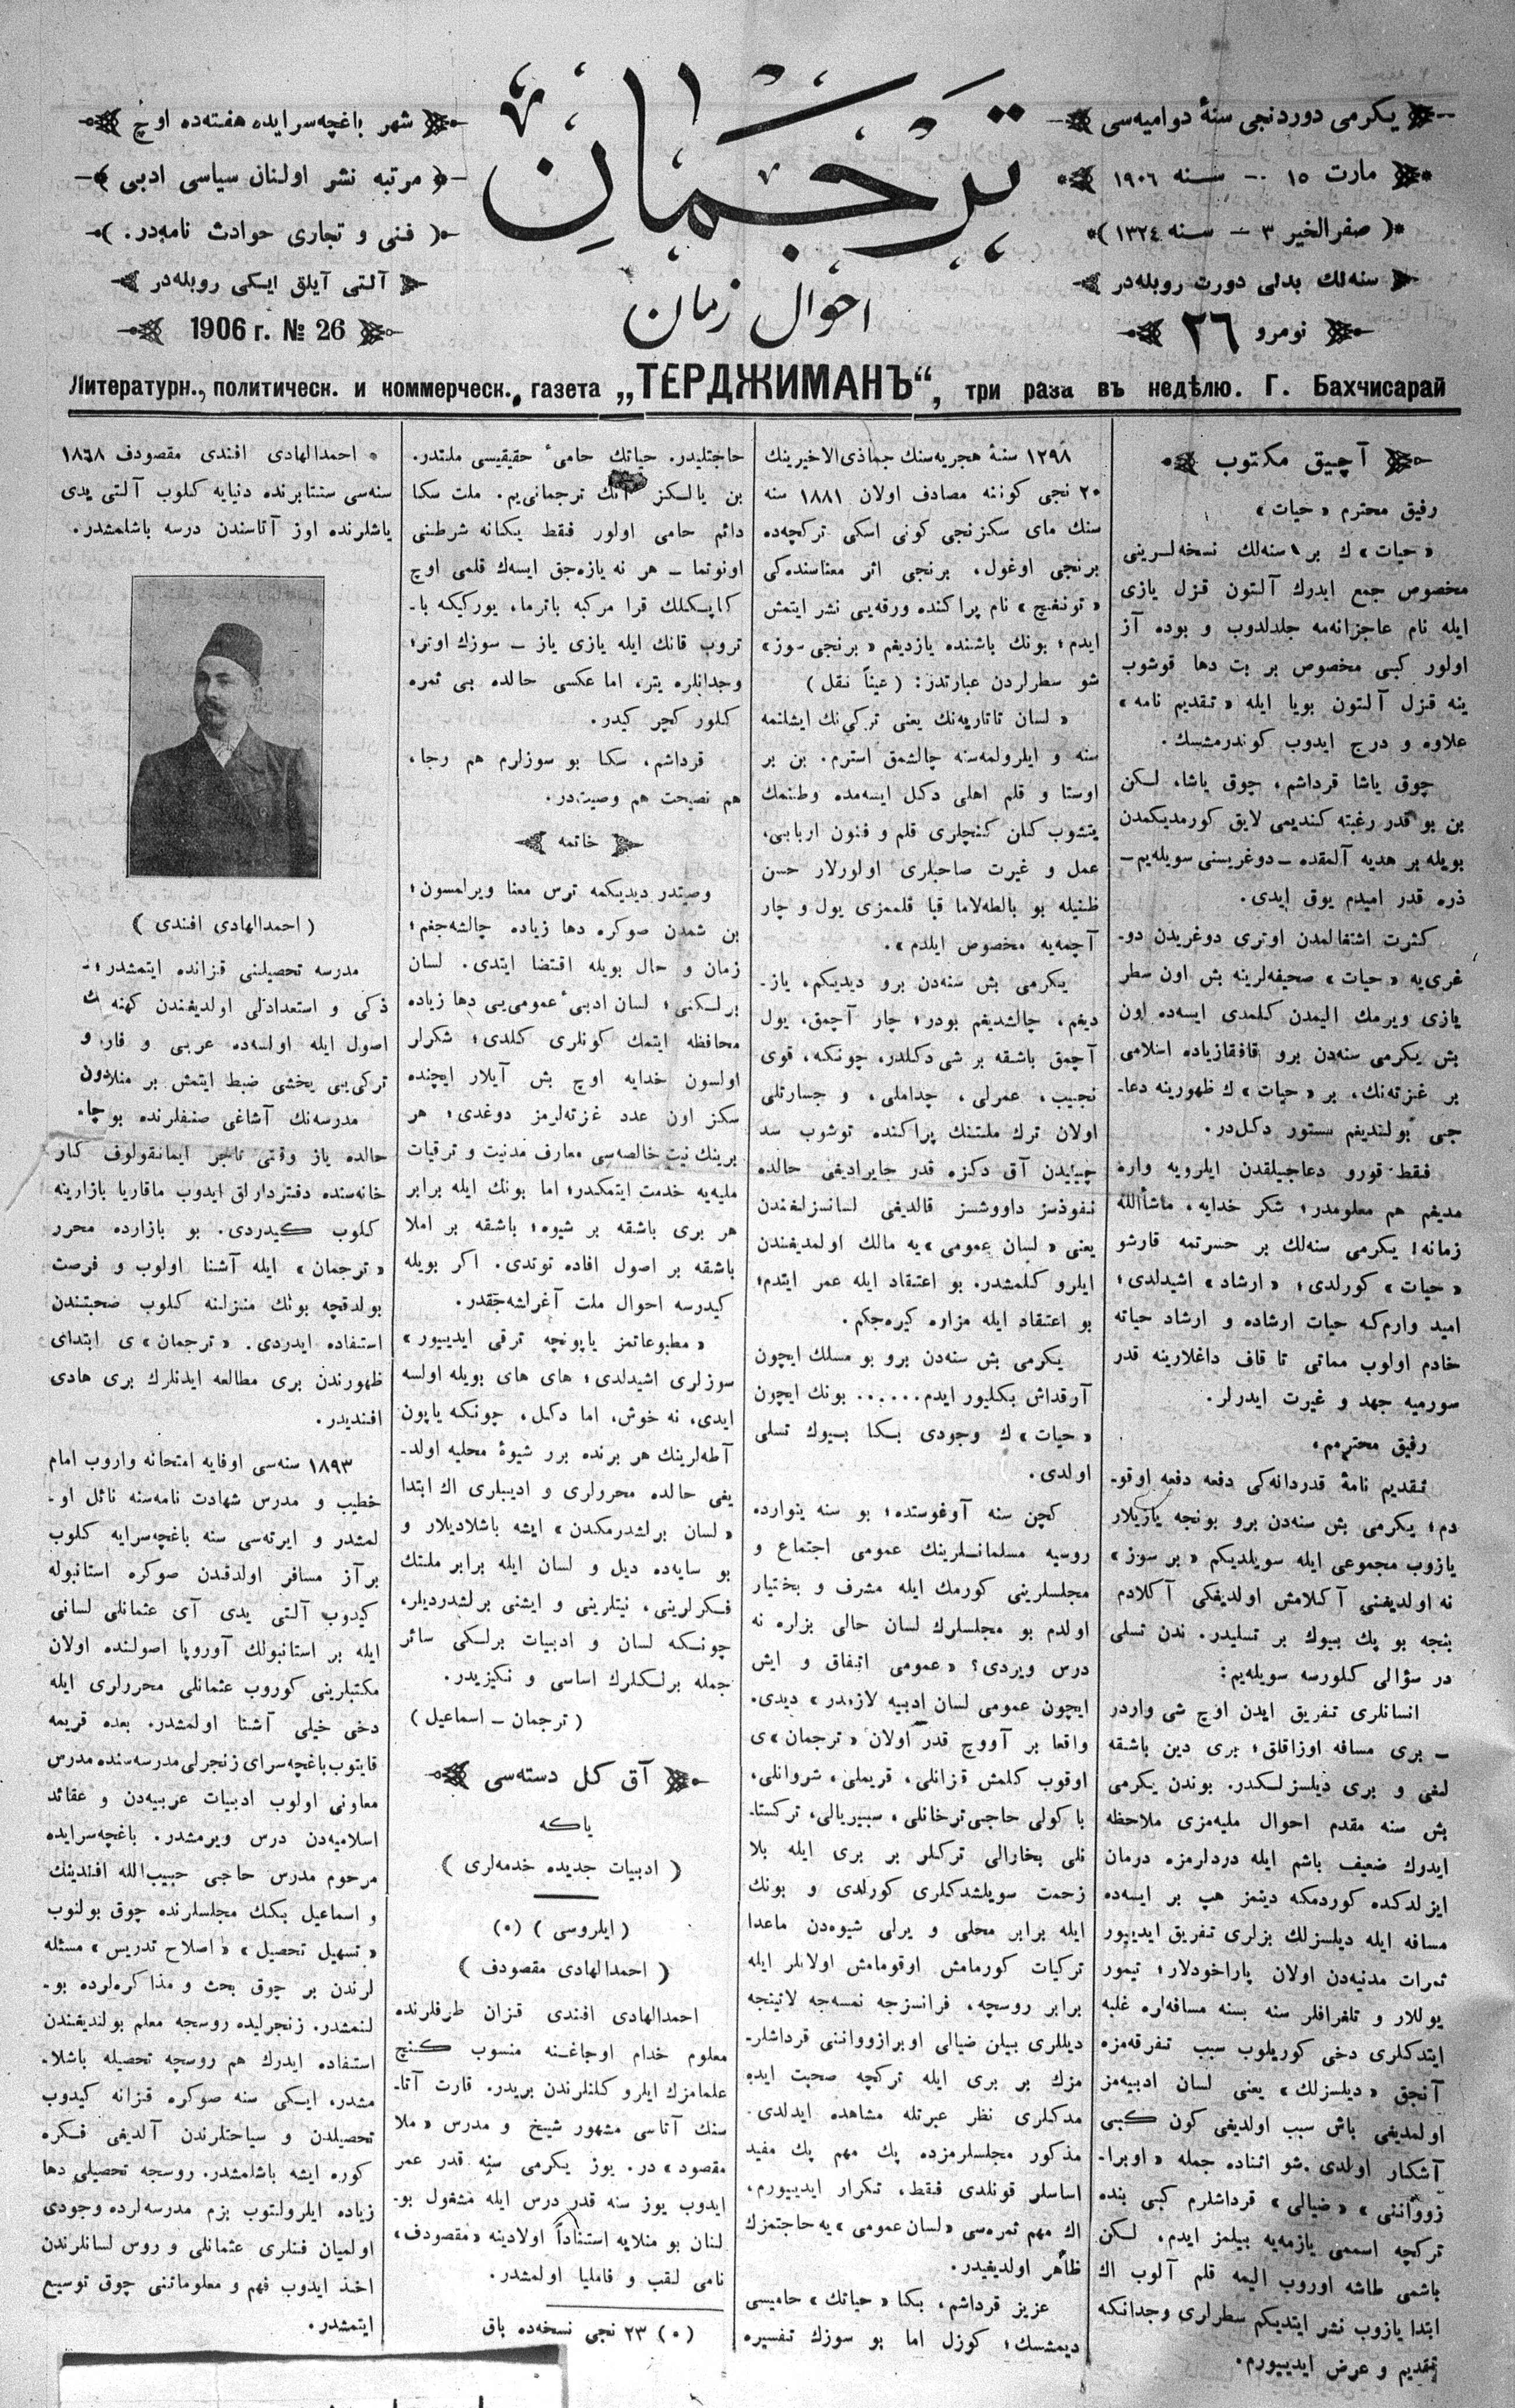 یكرمی دوردنجی سنهٔ دوامیه‌سی
مارت ١٥ — سـنه ١٩٠٦
( صفرالخیر ٣ — سـنه ١٣٢٤ )
سنه‌لك بدلی دورت روبله‌در
نومرو ٢٦
ترجمان
احوال زمان
شهر باغچه‌سرایده هفته‌ده اوچ
مرتبه نشر اولنان سیاسی ادبی
( فنی و تجاری حوادث نامه‌در. )
آلتی آیلق ایكی روبله‌در
1906 г. № 26
Литературн., политическ. и коммерческ., газета „ТЕРДЖИМАНЪ“, три раза въ недѣлю. Г. Бахчисарай
آچیق مكتوب
رفیق محترم « حیات »
« حیات » ك بر سنه‌لك نسخه‌لـرینی
مخصوص جمع ایدرك آلتون قزل یازی
ایله نام عاجزانه‌مه جلدلدوب و بوده آز
اولور كبی مخصوص بر بت دها قوشوب
ینه قزل آلتون بویا ایله « تقدیم نامه »
علاوه و درج ایدوب كوندرمشسك.
چوق یاشا قرداشم، چوق یاشا، لـكن
بن بو قدر رغبته كندیمی لایق كورمدیكمدن
بویله بر هدیه آلمقده ــ دوغریسنی سویله‌یم ــ
ذره قدر امیدم یوق ایدی.
كثرت اشتغالمدن اوتری دوغریدن دو-
غری‌یه « حیات » صحیفه‌لرینه بش اون سطر
یازی ویرمك الیمدن كلمدی ایسه‌ده اون
بش یكرمی سنه‌دن برو قافقازیاده اسلامی
بر غزته‌نك، بر « حیات » ك ظهورینه دعا-
جی بولندیغم مستور دكل‌در.
فقط قورو دعاجیلقدن ایلرویه واره
مدیغم هم معلومدر؛ شكر خدایه، ماشأالله
زمانه! یكرمی سنه‌لك بر حسرتمه قارشو
« حیات » كورلدی؛ « ارشاد » اشیدلدی؛
امید وارم‌كه حیات ارشاده و ارشاد حیاته
خادم اولوب مماتی تا قاف داغلارینه قدر
سورمیه جهد و غیرت ایدرلر.
رفیق محترمم.
تقدیم نامهٔ قدردانه‌كی دفعه دفعه اوقو-
دم؛ یكرمی بش سنه‌دن برو بونجه یازیلار
یازوب مجموعی ایله سویلدیكم « بر سوز »
نه اولدیغنی آكلامش اولدیغكی آكلادم
بنجه بو پك بیوك بر تسلیدر. ندن تسلی
در سؤالی كلورسه سویله‌یم:
انسانلری تفریق ایدن اوچ شی واردر
ــ بری مسافه اوزاقلق؛ بری دین باشقه
لغی و بری دیلسزلـكدر. بوندن یكرمی
بش سنه مقدم احوال ملیه‌مزی ملاحظه
ایدرك ضعیف باشم ایله دردلرمزه درمان
ایزلدكده كوردمكه دینمز هپ بر ایسه‌ده
مسافه ایله دیلسزلك بزلری تفریق ایدییور
ثمرات مدنیه‌دن اولان پاراخودلار؛ تیمور
یوللار و تلغرافلر سنه بسنه مسافه‌لره غلبه
ایتدكلری دخی كوریلوب سبب تفرقه‌مزه
آنجق « دیلسزلك » یعنی لسان ادبیه‌مز
اولمدیغی باش سبب اولدیغی كون كـبی
آشكار اولدی. شو اثناده جمله « اوبرا-
زوواننی » « ضیالی » قرداشلرم كبی بنده
تركچه اسممی یازمه‌یه بیلمز ایدم، لـكن
باشمی طاشه اوروب الیمه قلم آلوب اك
ابتدا یازوب نشر ایتدیكم سطرلری وجدانكه
تقدیم و عرض ایدییورم.
١٢٩٨ سنهٔ هجریه‌سنك جماذی‌الاخیرینك
٢٠ نجی كوننه مصادف اولان ١٨٨١ سنه
سنك مای سكزنجی كونی اسكی تركچه‌ده
برنجی اوغول، برنجی اثر معناسنده‌كی
« تونغیچ » نام پراكنده ورقه‌یی نشر ایتمش
ایدم؛ بونك باشنده یازدیغم « برنجی سوز »
شو سطرلردن عبارتدر: ( عیناً نقل )
« لسان تاتاریه‌نك یعنی تركی‌نك ایشلنمه
سنه و ایلرولمه‌سنه چالشمق استرم. بن بر
اوستا و قلم اهلی دكل ایسه‌مده وطنمك
یتشوب كلن كنجلری قلم و فنون اربابی،
عمل و غیرت صاحبلری اولورلار حسن
ظنیله بو بالطه‌لاما قبا قلممزی یول و چار
آچمه‌یه مخصوص ایلدم ».
یكرمی بش سنه‌دن برو دیدیكم، یاز-
دیغم، چالشدیغم بودر؛ چار آچمق، یول
آچمق باشقه بر شی دكلدر، چونكه، قوی
نجیب، عمرلی، چداملی، و جسارتلی
اولان ترك ملتنك پراكنده توشوب سد
چینیدن آق دكزه قدر جایرادیغی حالده
نفوذسز داووشسز قالدیغی لسانسزلغندن
یعنی « لسان عمومی » یه مالك اولمدیغندن
ایلرو كلمشدر. بو اعتقاد ایله عمر ایتدم؛
بو اعتقاد ایله مزاره كیره‌جكم.
یكرمی بش سنه‌دن برو بو مسلك ایچون
آرقداش بكلیور ایدم...... بونك ایچون
« حیات » ك وجودی بـكا بـیوك تسلی
اولدی.
كچن سنه آوغوستده؛ بو سنه ینوارده
روسیه مسلمانـلرینك عمومی اجتماع و
مجلسلرینی كورمك ایله مشرف و بختیار
اولدم بو مجلسلرك لسان حالی بزلره نه
درس ویردی؟ « عمومی اتفاق و ایش
ایچون عمومی لسان ادبیه لازمدر » دیدی.
واقعا بر آووچ قدر اولان « ترجمان » ی
اوقوب كلمش قزانلی، قریملی، شروانلی،
باكولی حاجی‌ترخانلی، سیبریالی، تركستا-
نلی بخارالی تركلر بر بری ایله بلا
زحمت سویلشدكلری كورلدی و بونك
ایله برابر محلی و یرلی شیوه‌دن ماعدا
تركیات كورمامش اوقومامش اولانلر ایله
برابر روسچه، فرانسزجه نمسه‌جه لاتینجه
دیللری بیلن ضیالی اوبرازوواننی قرداشلر-
مزك بر بری ایله تركچه صحبت ایده
مدكلری نظر عبرتله مشاهده ایدلدی.
مذكور مجلسلرمزده پك مهم پك مفید
اساسلر قونلدی فقط، تكرار ایدییورم،
اك مهم ثمره‌سی « لسان عمومی » یه حاجتمزك
ظاهر اولدیغیدر.
عزیز قرداشم، بكا « حیاتك » حامیسی
دیمشسك؛ كوزل اما بو سوزك تفسیره
حاجتلیدر. حیاتك حامیٔ حقیقیسی ملتدر.
بن یالـكز آنك ترجمانی‌یم. ملت سكا
دائم حامی اولور فقط یكانه شرطنی
اونوتما ــ هر نه یازه‌جق ایسه‌ك قلمی اوچ
كاپـكلك قرا مركبه باترما، یوركیكه با-
تروب قانك ایله یازی یاز ــ سوزك اوتر؛
وجدانلره یتر، اما عكسی حالده بی ثمره
كلور كچر كیدر.
قرداشم، سكا بو سوزلرم هم رجا،
هم نصیحت هم وصیت‌در.
خاتمه
وصیتدر دیدیكمه ترس معنا ویرلمسون؛
بن شمدن صوكره دها زیاده چالشه‌جغم؛
زمان و حال بویله اقتضا ایتدی. لسان
برلـكنی؛ لسان ادبیٔ عمومی‌یی دها زیاده
محافظه ایتمك كونلری كلدی؛ شكرلر
اولسون خدایه اوچ بش آیلار ایچنده
سكز اون عدد غزته‌لرمز دوغدی؛ هر
برینك نیت خالصه‌سی معارف مدنیت و ترقیات
ملیه‌یه خدمت ایتمكدر؛ اما بونك ایله برابر
هر بری باشقه بر شیوه؛ باشقه بر املا
باشقه بر اصول افاده توتدی. اكر بویله
كیدرسه احوال ملت آغرلشه‌جقدر.
« مطبوعاتمز یاپونچه ترقی ایدییور »
سوزلری اشیدلدی؛ های های بویله اولسه
ایدی، نه خوش، اما دكل، چونكه یاپون
آطه‌لرینك هر برنده برر شیوهٔ محلیه اولد-
یغی حالده محررلری و ادیبلری اك ابتدا
« لسان برلشدرمكدن » ایشه باشلادیلار و
بو سایه‌ده دیل و لسان ایله برابر ملتك
فـكرلرینی، نیتلرینی و ایشنی برلشدردیلر،
چونـكه لسان و ادبیات برلـكی سائر
جمله برلـكلرك اساسی و نكیزیدر.
( ترجمان ــ اسماعیل )
آق كل دسته‌سی
یاكه
( ادبیات جدیده خدمه‌لری )
( ایلروسی ) (٠)
( احمدالهادی مقصودف )
احمدالهادی افندی قـزان طرفلرنده
معلوم خدام اوجاغـنه منسوب كـنج
علمامزك ایلرو كلنلرندن بریدر. قارت آتا-
سنك آتاسی مشهور شیخ و مدرس « ملا
مقصود » در. یوز یكرمی سنه قدر عمر
ایدوب یوز سنه قدر درس ایله مشغول بو-
لنان بو منلایه استناداً اولادینه « مقصودف »
نامی لـقب و فاملیا اولمشدر.
(٠) ٢٣ نجی نسخه‌ده باق
احمدالهادی افـندی مقصودف ١٨٦٨
سنه‌سی سنتابرنده دنیایه كلوب آلتی یدی
یاشلرنده اوز آتاسندن درسه باشلمشدر.
( احمدالهادی افندی )
مدرسه تحصیلنی قـزانده ایتمشدر؛
ذكی و استعدادلی اولدیغندن كهنه
اصول ایله اولسه‌ده عربی و فار و
تركی‌یی یخشی ضبط ایتمش بر منلادون
مدرسه‌نك آشاغی صنفلرنده بو چاء
حالده یاز وقتی تاجر ایمانقولوف كنار
خانه‌سنده دفتردارلق ایدوب ماقاریا بازارینه
كلوب كـیدردی. بو بازارده محرر
« ترجمان » ایله آشنا اولوب و فرصت
بولدقچه بونك منزلنه كلوب صحبتندن
استفاده ایدردی. « ترجمان » ی ابتدای
ظهورندن بری مطالعه ایدنلرك بری هادی
افندیدر.
١٨٩٣ سنه‌سی اوفایه امتحانه واروب امام
خطیب و مدرس شهادت نامه‌سنه نائل او-
لمشدر و ایرته‌سی سنه باغچه‌سرایه كلوب
برآز مسافر اولدقـدن صوكره استانبوله
كیدوب آلتی یدی آی عثمانلی لسانی
ایله بر استانبولك آوروپا اصولنده اولان
مكتبلرینی كوروب عثمانلی محررلری ایله
دخی خیلی آشنا اولمشدر. بعده قریمه
قایتوب باغچه‌سرای زنجرلی مدرسه‌سنده مدرس
معاونی اولوب ادبیات عربیه‌دن و عقائد
اسلامیه‌دن درس ویرمشدر. باغچه‌سرایده
مرحوم مدرس حاجی حبیب‌الله افندینك
و اسماعیل بكك مجلسلرنده چوق بولنوب
« تسهیل تحصیل » « اصلاح تدریس » مسئله
لرندن بر چوق بحث و مذاكره‌لرده بو-
لنمشدر. زنجرلیده روسجه معلم بولندیغندن
استفاده ایدرك هم روسچه تحصیله باشلا-
مشدر، ایـكی سنه صوكره قزانه كیدوب
تحصیلدن و سیاحتلرندن آلدیغی فـكره
كوره ایشه باشلمشدر. روسجه تحصیلی دها
زیاده ایلرولتوب بزم مدرسه‌لرده وجودی
اولمیان فنلری عثمانلی و روس لسانلرندن
اخذ ایدوب فهم و معلوماتنی چوق توسیع
ایتمشدر.